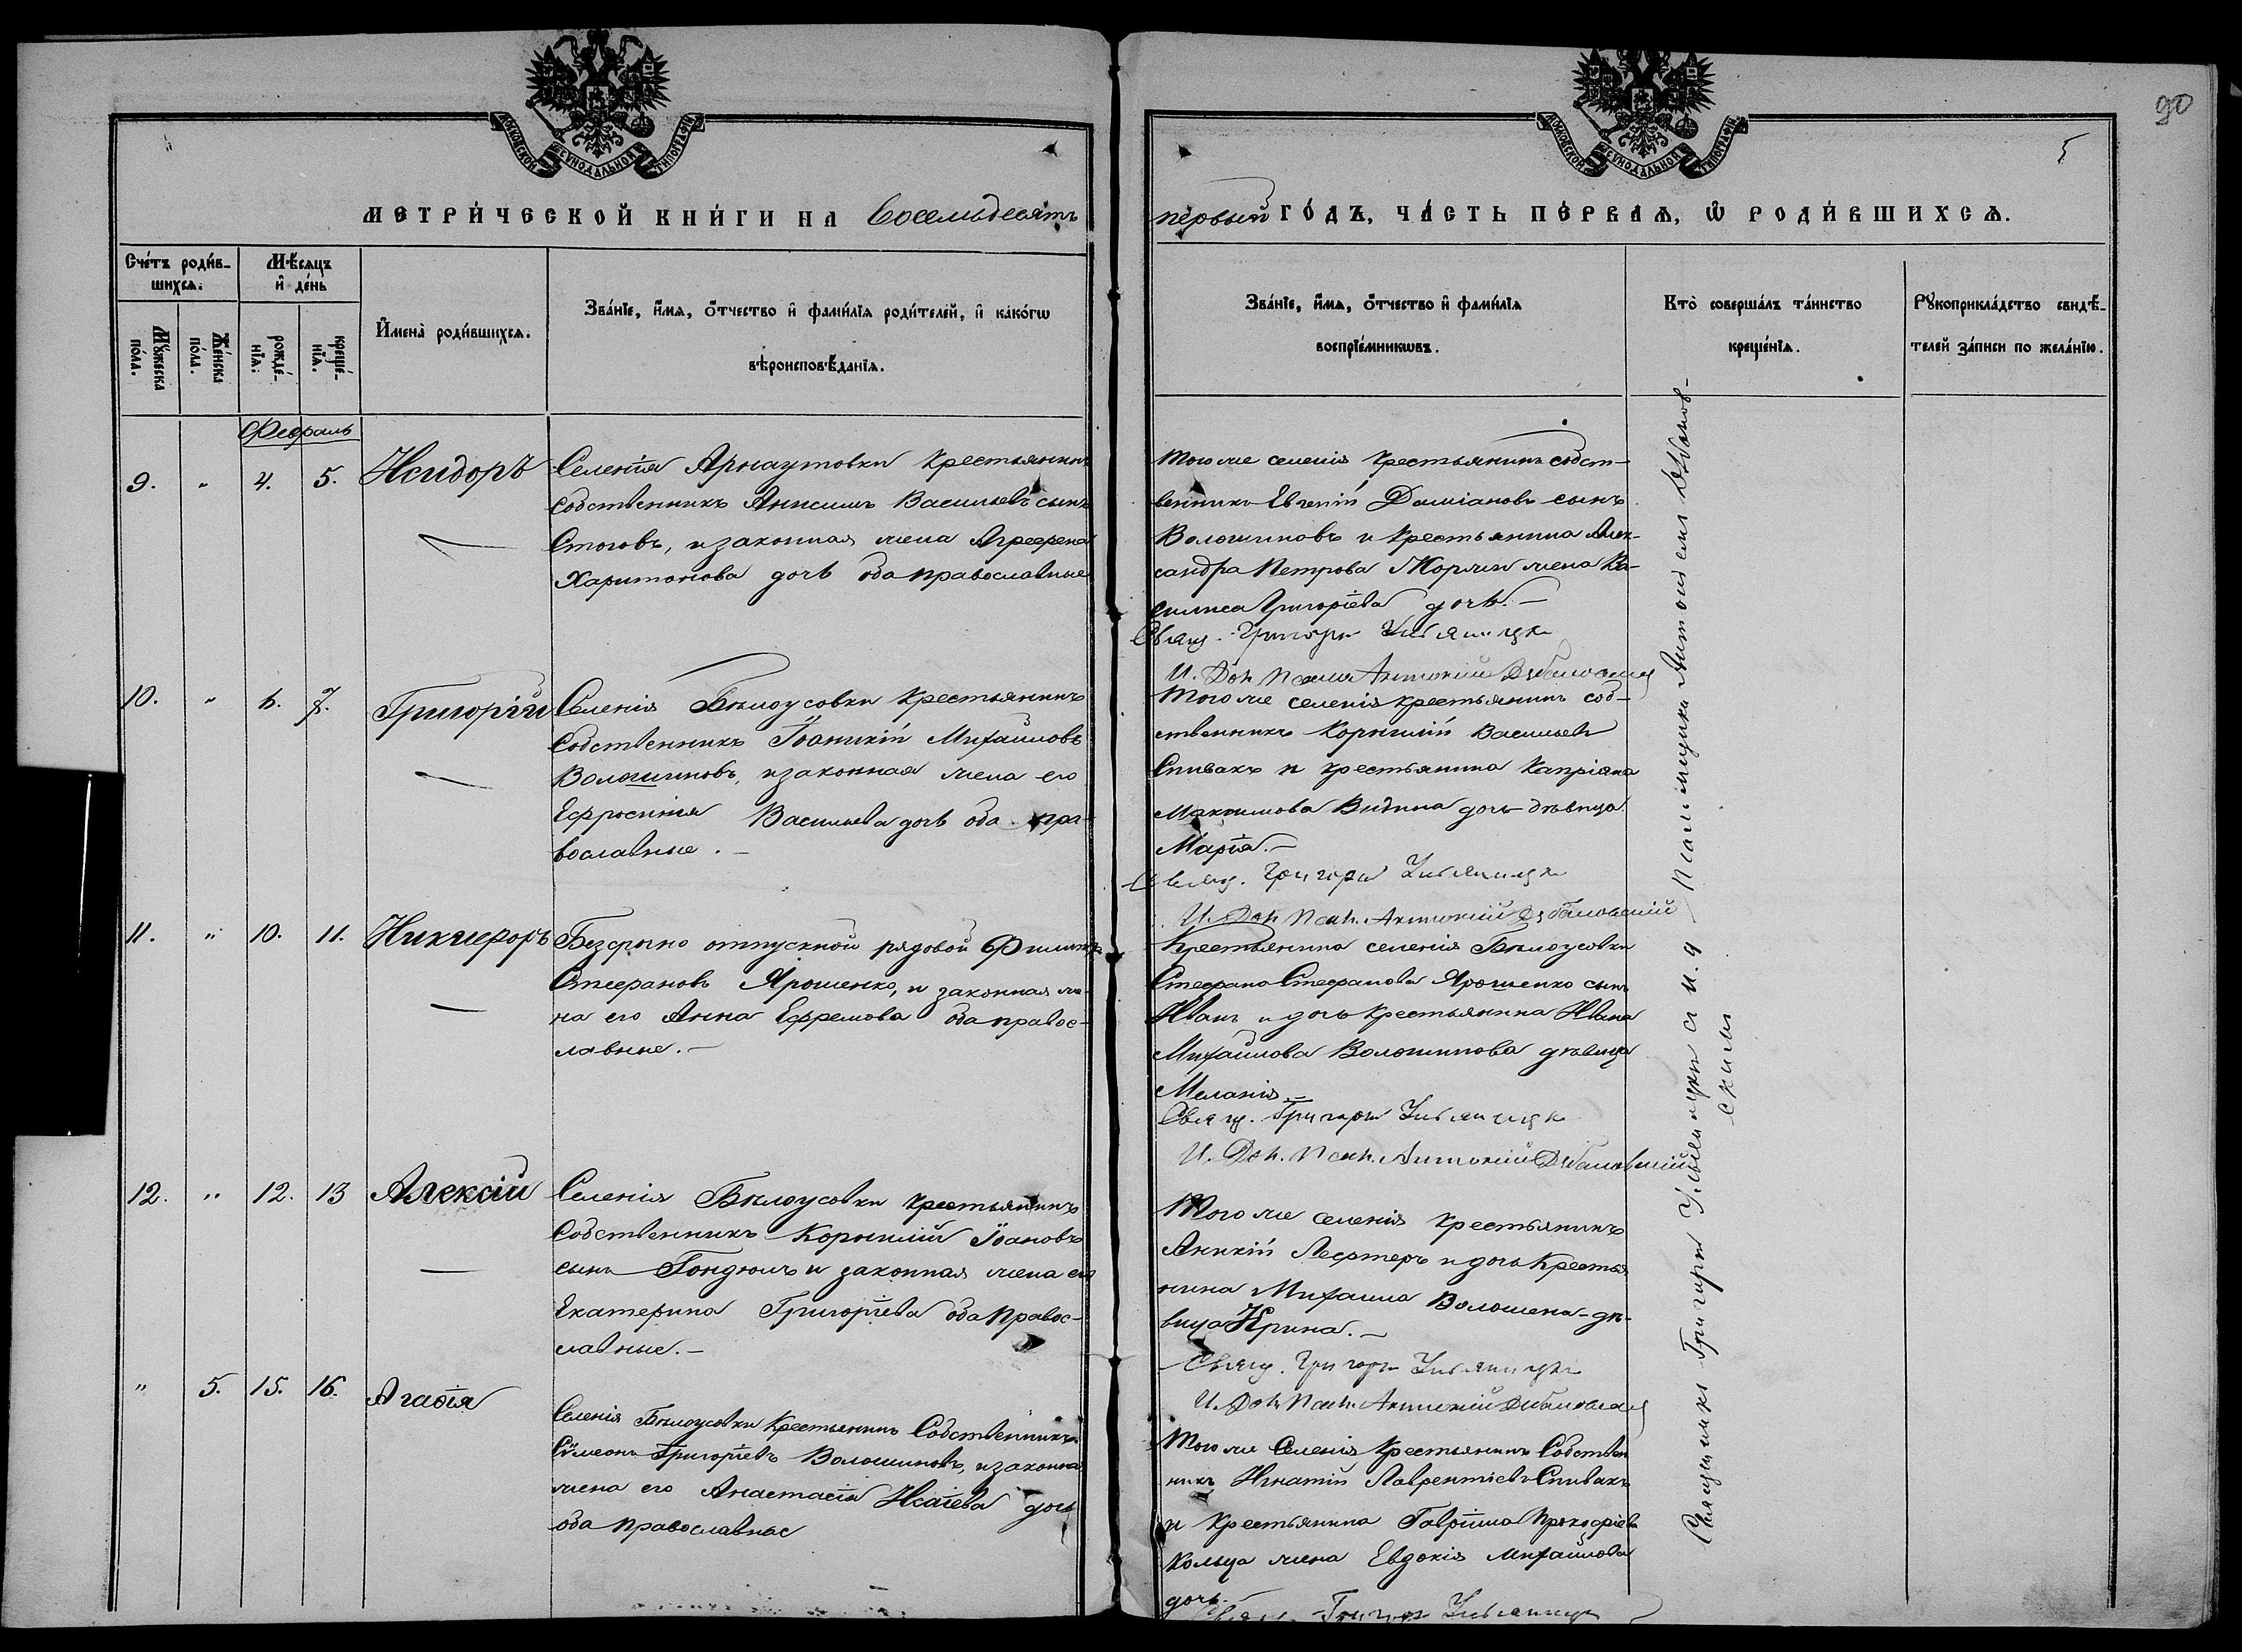 90
5
МОСКОВСКОЙ СѴНОДАЛЬНОЙ ТИПОГРАФІИ
МОСКОВСКОЙ СѴНОДАЛЬНОЙ ТИПОГРАФІИ
МЕТРИ́ЧЕСКОЙ КНИ́ГИ НА Восемьдесятъ
первый ГО́ДЪ, ЧА́СТЬ ПЕ́РВАѦ, Ѡ҆ РОДИ́ВШИХСѦ.
Сче́тъ роди́в-
шихсѧ.
Мѣ́сѧцъ
и҆ де́нь
Мꙋ́жеска
по́ла.
Же́нска
по́ла.
рожде́-
нїѧ.
креще́-
нїѧ.
И҆мена̀ роди́вшихсѧ.
Зва́нїе, и҆́мѧ, ѻ҆́тчество и҆ фами́лїѧ роди́телей, и҆ како́гѡ
вѣроисповѣ́данїѧ.
Зва́нїе, и҆́мѧ, ѻ҆́тчество и҆ фами́лїѧ
воспрїе́мникѡвъ.
Кто̀ соверша́лъ та́инство
креще́нїѧ.
Рꙋкоприкла́дство свидѣ́-
телей за́писи по жела́нїю.
Февраль
9. " 4. 5. Исидоръ
Селенія Арнаутовки крестьянинъ
собственникъ Анисимъ Васильевъ сынъ
Стоговъ, и законная жена Агрефена
Харитонова дочь оба православные
Того же селенія крестьянинъ собст-
венникъ Евгеній Даміановъ сынъ
Волошиновъ и крестьянина Алек-
сандра Петрова жена Ва-
силиса Григоріева дочь.—
Свящ. Григорій
И. Дол. Псал. Антоній
10. " 6. 7. Григорій
Селенія Бѣлоусовки крестьянинъ
собственникъ Іоаникій Михайловъ
Волошиновъ, и законная жена его
Ефросинія Васильева дочь оба пра-
вославные.—
Того же селенія крестьянинъ соб-
ственникъ Корнилій Васильевъ
Спивакъ и крестьянина Капріяна
Максимова Видина дочь дѣвица
Марія.—
Свящ. Григорій
И. Дол. Псал. Антоній
11. " 10. 11. Никифоръ
Безсрочно отпускной рядовой Филипъ
Стефановъ Ярошенко, и законная же-
на его Анна Ефремова оба правос-
лавные.—
Крестьянина селенія Бѣлоусовки
Стефана Стефанова Ярошенко сынъ
Иванъ и дочь крестьянина Ивана
Михайлова Волошинова дѣвица
Меланія.—
Свящ. Григорій
И. Дол. Псал. Антоній
12. " 12. 13 Алексій
Селенія Бѣлоусовки крестьянинъ
собственникъ Корнилій Іоановъ
сынъ Гондюлъ и законная жена его
Екатерина Григоріева оба правос-
лавные.—
Того же селенія крестьянинъ
Аникій Лефтеръ и дочь крестья
нина Михаила Волошена дѣ-
вица Ирина.—
Свящ. Григорій
И. Дол. Псал. Антоній
" 5. 15. 16. Агафія
Селенія Бѣлоусовки крестьянинъ Собственникъ
Сѵмеонъ Григоріевъ Волошиновъ, и законна
жена его Анастасія Исаіева дочь
оба православные
Того же Селенія Крестьянинъ Собствен
никъ Игнатій Лаврентіевъ Спивакъ
и крестьянина Гавріила Прокофіева
Кольца жена Евдокія Михайлова
дочь.—
Свящ. Григорій
Священникъ Григорій съ и. д. псаломщика Антоніемъ
скимъ